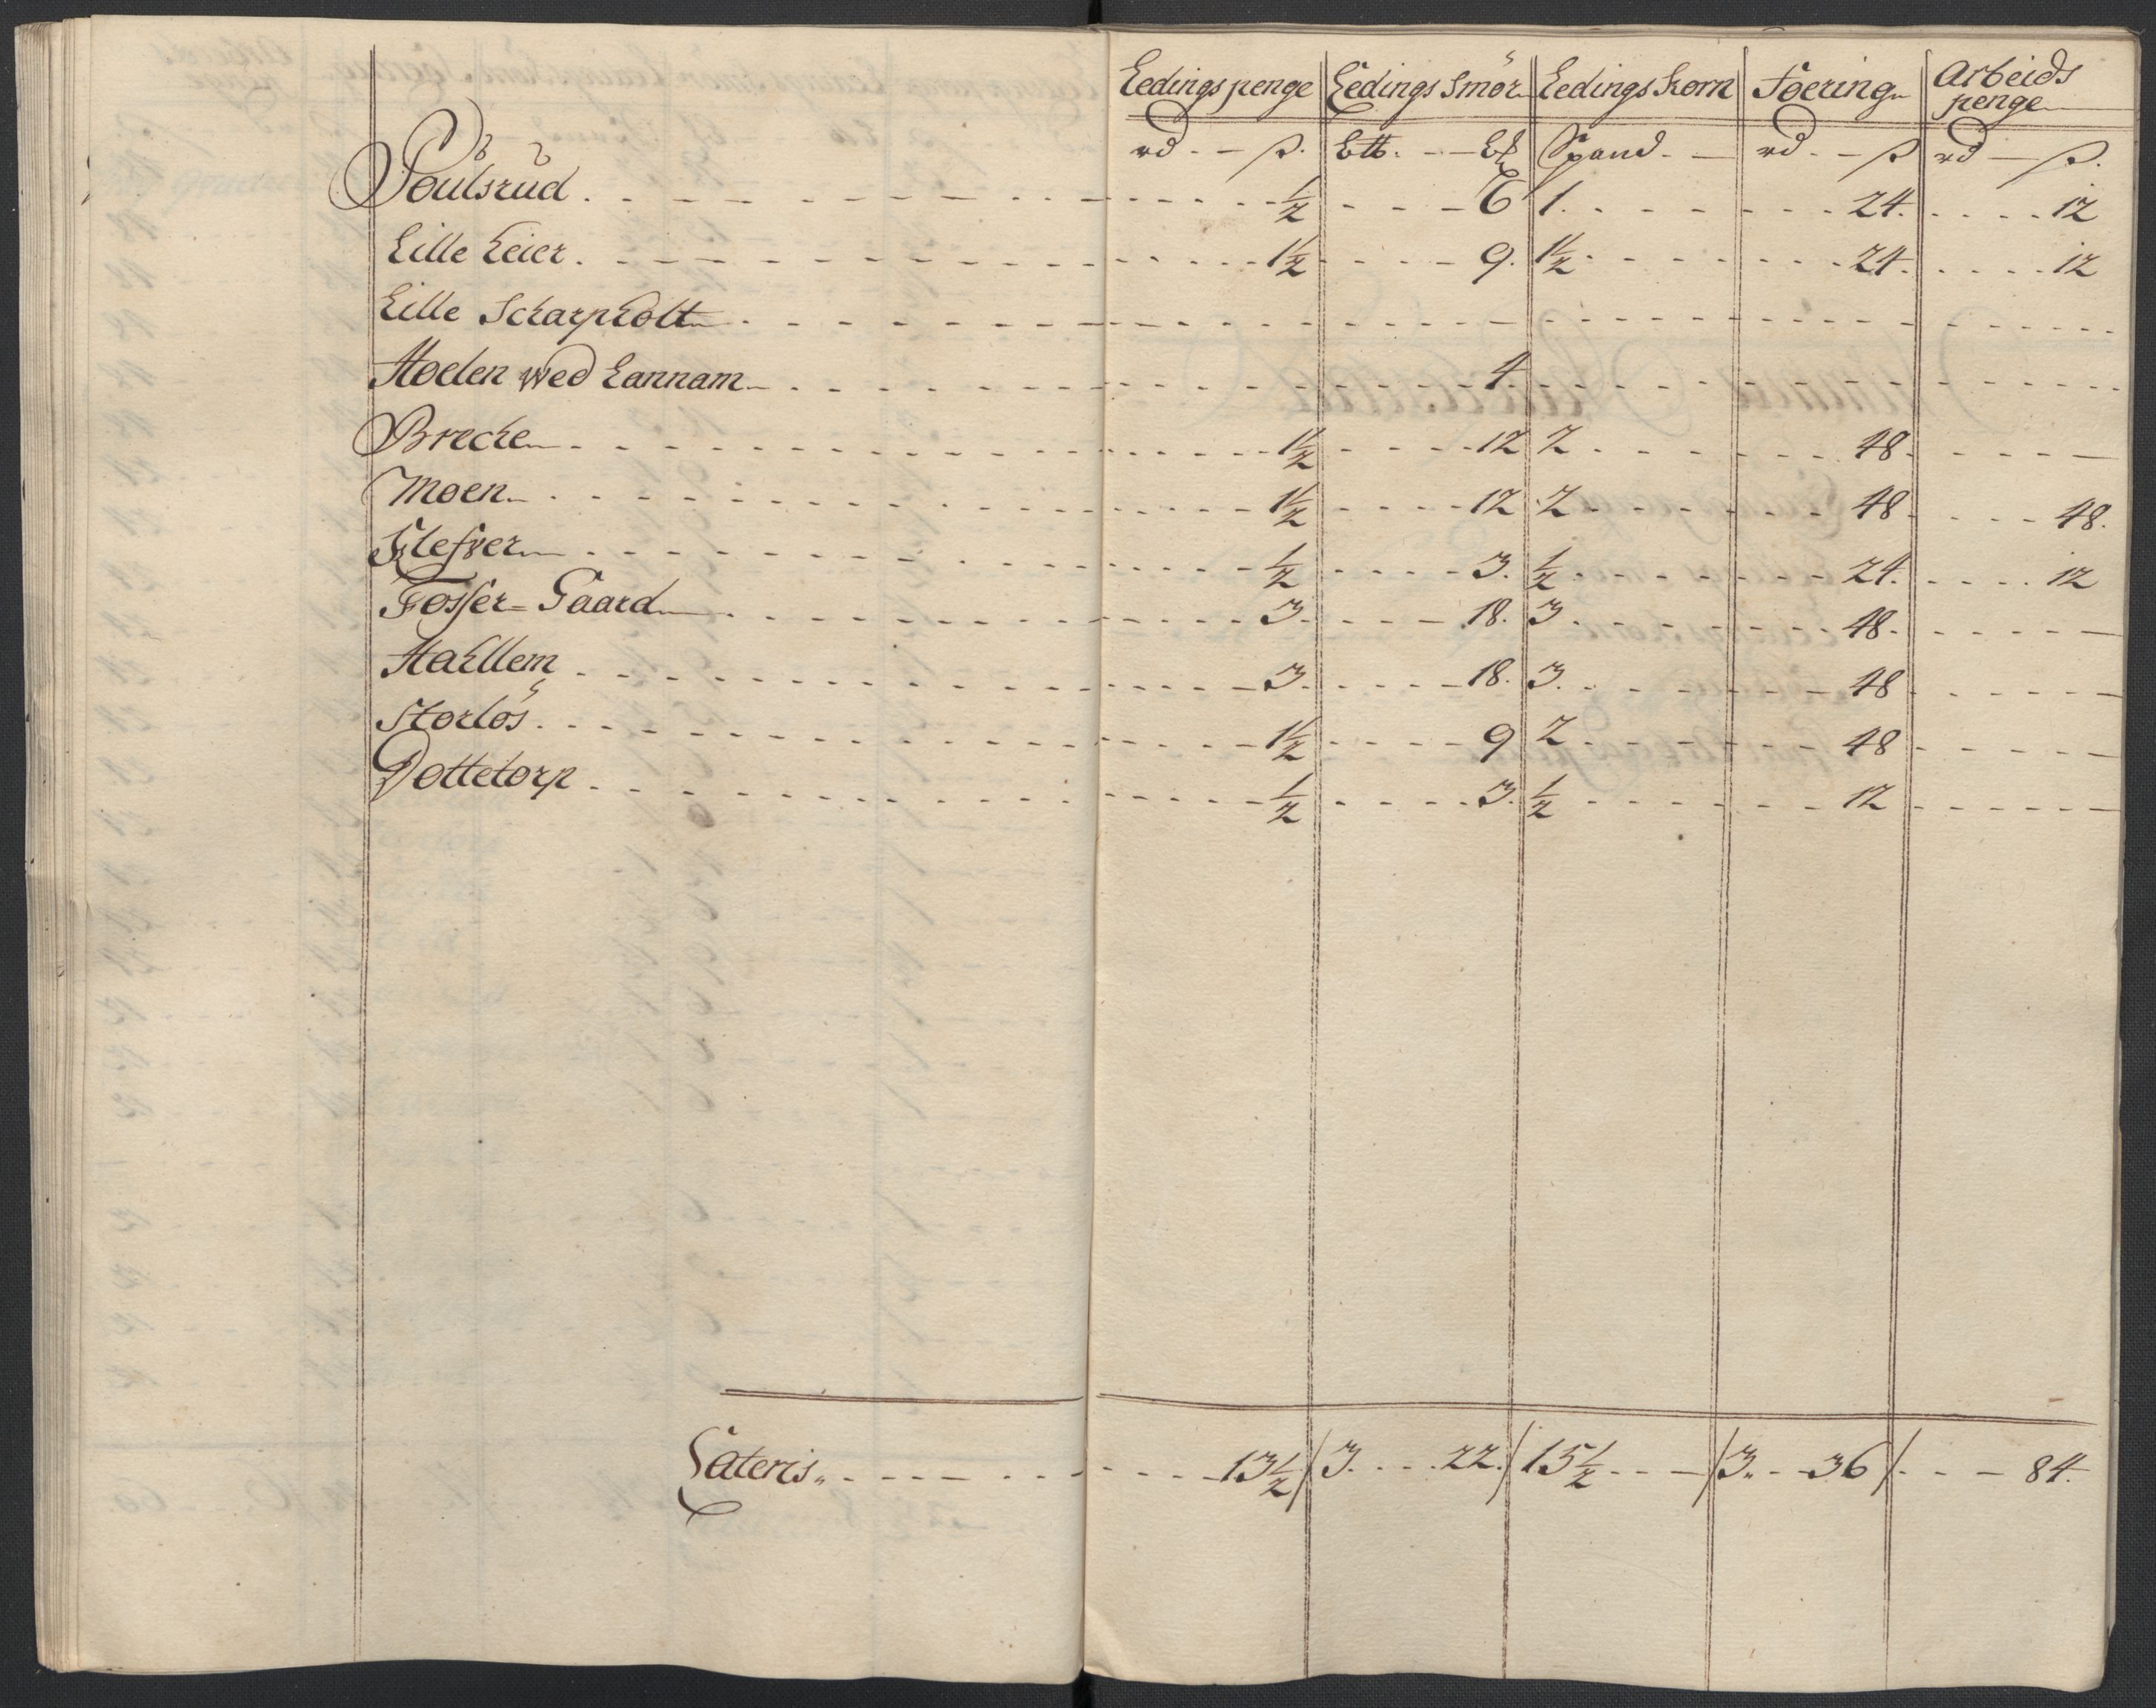 Ledings penge Ledings Smör Ledings Korn Foering Arbeids penge
rd ß. Spand rd ß rd ß.
Poulsrud ½ 6 1. 24. 12
Lille Leier 1½ 9. 1½ 24. 12
Lille Scharpholt
Hoelen wed Lannam 4
Brecke 1½ 12 2 48
Moen 1½ 12 2 48 48.
Klefver ½ 3. ½ 24. 12
Fosser-Gaard 3 18. 3 48
Hahllem 3 18. 3. 48
Horlös 1½ 9 2 48
Dottetorp ½ 3. ½ 12
Lateris 13½ / 3. 22. / 15½ / 3. 36 / 84.